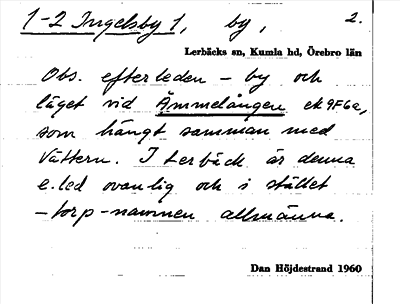 1-2 Ingelsby 1, by, 2.
Lerbäcks sn, Kumla hd, Örebro län
Obs. efterleden - by och
läget vid Ämmelången ek9F6a,
som hängt samman med
Vättern. I Lerbäck är denna
e.led ovanlig och i stället
-torp-namnen allmänna.
Dan Höjdestrand 1960